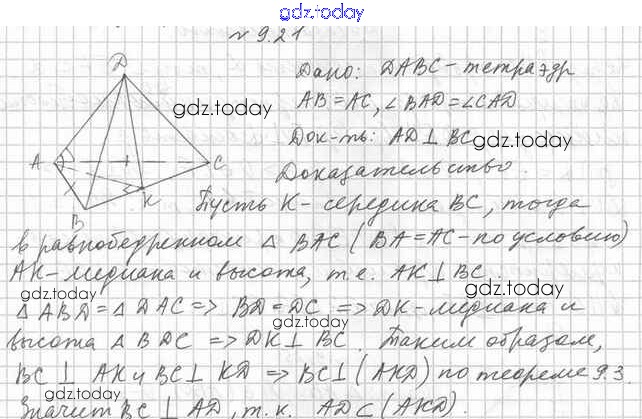 gdz.today
№ 9.21
Дано: DABC - тетраэдр
AB = AC, ∠BAD = ∠CAD
gdz.today
Док-ть: AD ⊥ BC
gdz.today
Доказательство.
D
A
C
B
K
Пусть K - середина BC, тогда
в равнобедренном △ BAC (BA = AC - по условию)
AK - медиана и высота, т.е. AK ⊥ BC.
gdz.today
△ ABD = △ DAC => BD = DC => DK - медиана и
gdz.today
высота △ BDC => DK ⊥ BC. Таким образом,
gdz.today
BC ⊥ AK и BC ⊥ KD => BC ⊥ (AKD) по теореме 9.3.
Значит BC ⊥ AD, т.к. AD ⊂ (AKD).
gdz.today
gdz.today